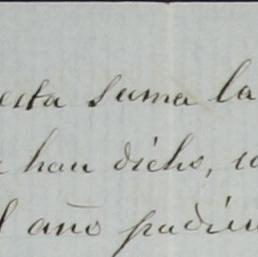 esta suma la
han dicho,
año pudie